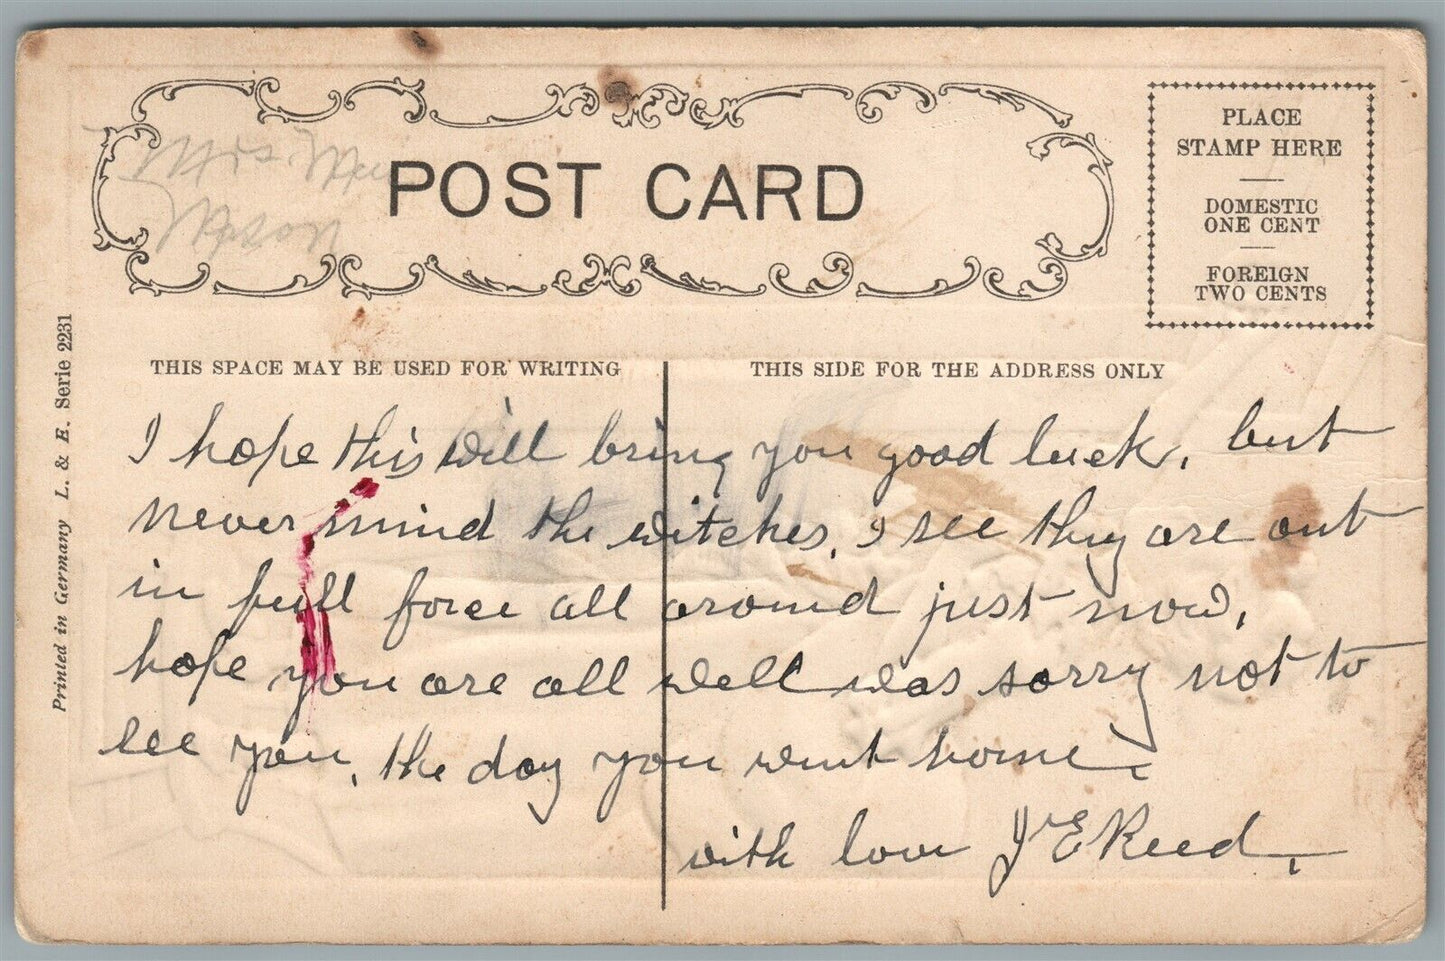 Mrs.
POST CARD
PLACE
STAMP HERE
DOMESTIC
ONE CENT
FOREIGN
TWO CENTS
Printed in Germany L. & E. Serie 2231
THIS SPACE MAY BE USED FOR WRITING
THIS SIDE FOR THE ADDRESS ONLY
I hope this will bring you good luck, but
never mind the witches, I see they are out
in full force all around just now,
hope you are all well was sorry not to
see you, the day you went home.
with love J E Reed.